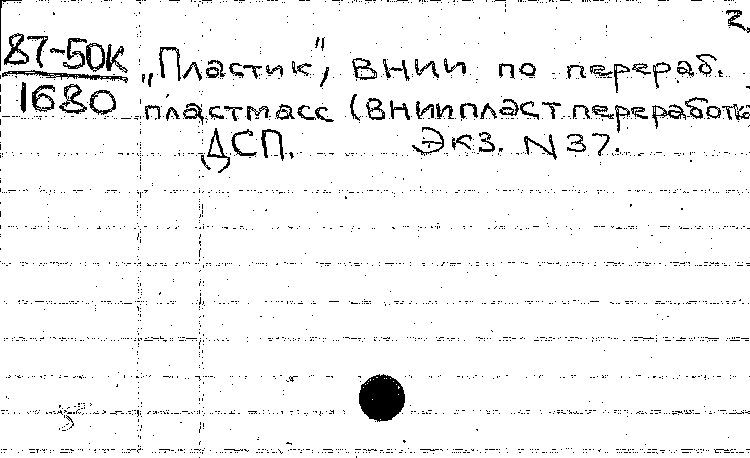 2.
87-50к „Пластик", ВНИИ по перераб.
1680 пластмасс (ВНИИпластпереработка
ДСП. Экз. N 37.